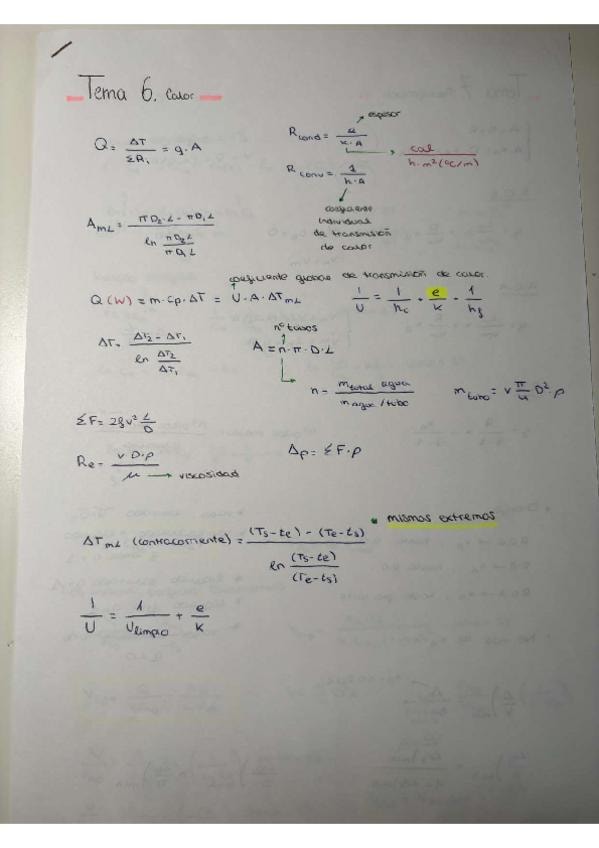 Tema 6. Calor
Q = ΔT / ΣRi = q · A
Rcond = e / k·A
espesor
cal / h·m²(ºC/m)
Rconv = 1 / h·A
coeficiente individual de transmisión de calor
AmL = (π D2·L - π D1 L) / ln (π D2 L / π D1 L)
coeficiente global de transmisión de calor.
Q (W) = m·Cp·ΔT = U·A·ΔTmL
1/U = 1/hc + e/k + 1/hf
ΔT = (ΔT2 - ΔT1) / ln (ΔT2 / ΔT1)
nº tubos
A = n·π·D·L
n = m total agua / m agua/tubo
m tubo = v π/4 D²·ρ
ΣF = 2 f v² L/D
Re = v D·ρ / μ → viscosidad
Δp = ΣF·ρ
• mismos extremos
ΔTmL (contracorriente) = ((Ts-te) - (Te-ts)) / ln ((Ts-te) / (Te-ts))
1/U = 1/Ulimpio + e/k